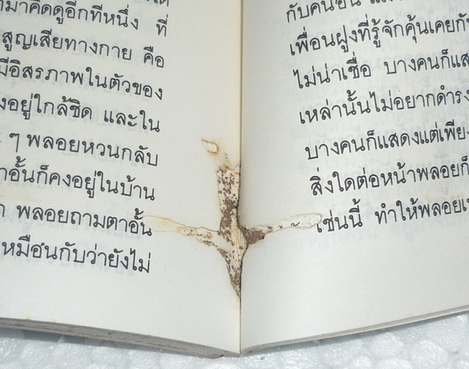 มาคิดดูอีกทีหนึ่ง ที่
สูญเสียทางกาย คือ
มีอิสรภาพในตัวของ
งอยู่ใกล้ชิด และใน
ๆ พลอยหวนกลับ
าอั้นก็คงอยู่ในบ้าน
พลอยถามตาอั้น
หมือนกับว่ายังไม่
กับคนอื่น
เพื่อนฝูงที่รู้จักคุ้นเคยกั
ไม่น่าเชื่อ บางคนก็แส
เหล่านั้นไม่อยากดำรง
บางคนก็แสดงแต่เพียง
สิ่งใดต่อหน้าพลอยก็
เช่นนี้ ทำให้พลอย